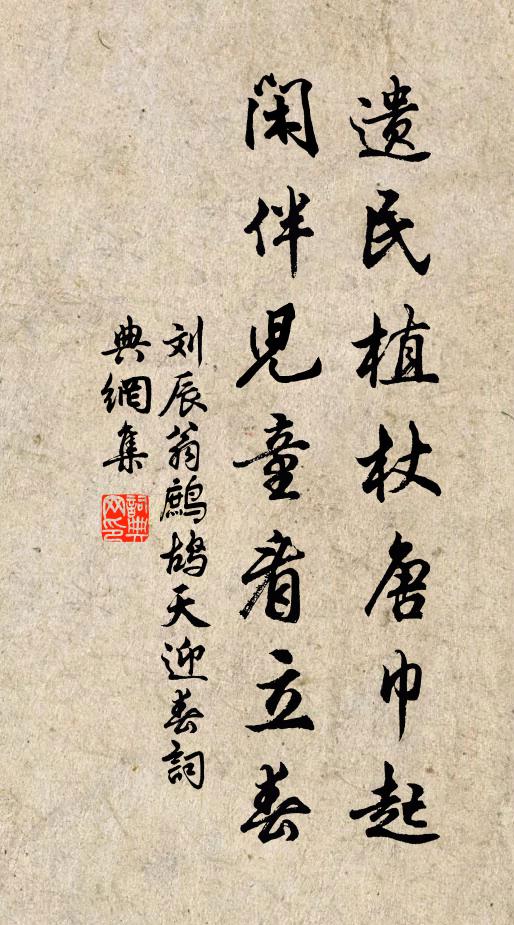 遗民植杖唐巾起
闲伴児童看立春
刘辰翁鹧鸪天迎春詞
典網集
詞典网印